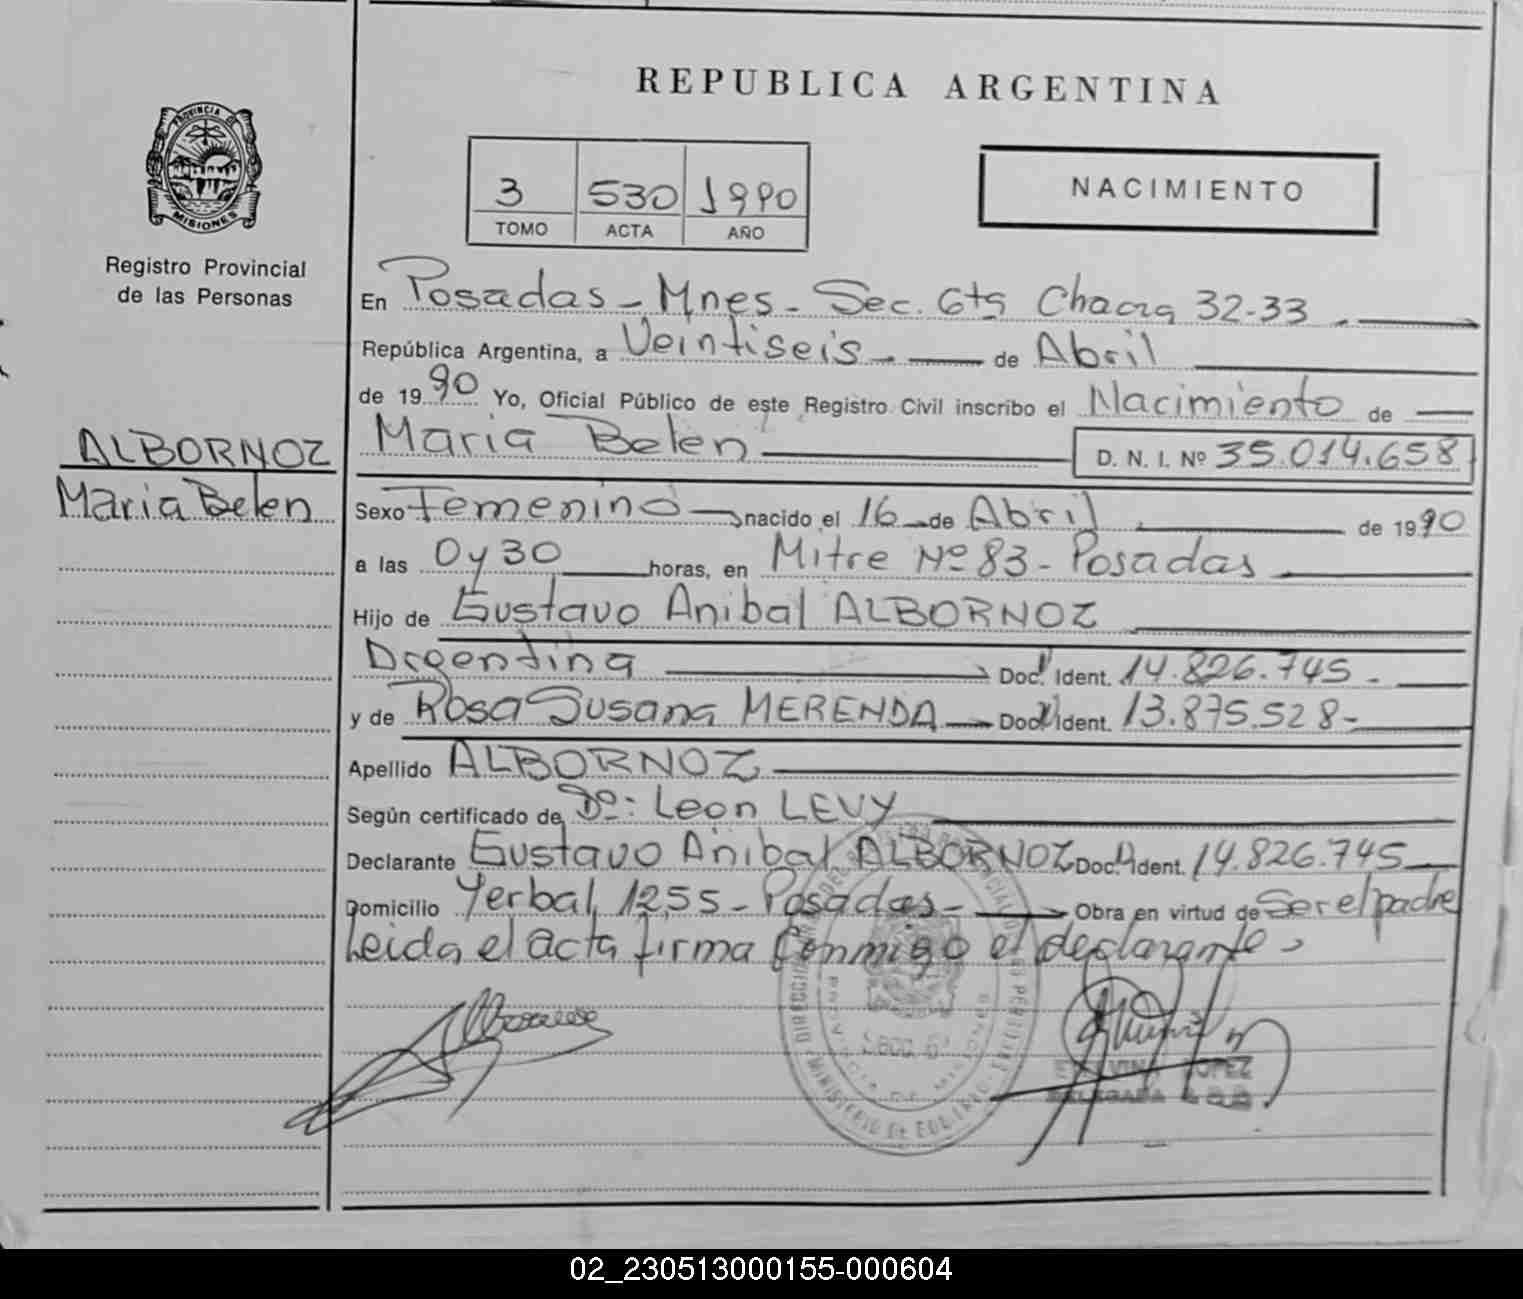 REPUBLICA ARGENTINA
PROVINCIA DE
MISIONES
Registro Provincial
de las Personas
3 530 1990
TOMO ACTA AÑO
NACIMIENTO
En Posadas - Mnes - Sec. 6ta Chacra 32-33
República Argentina, a Veintiseis de Abril
de 1990 Yo, Oficial Público de este Registro Civil inscribo el Nacimiento de
Maria Belen D. N. I. Nº 35.014.658
ALBORNOZ
Maria Belen
Sexo Femenino nacido el 16 de Abril de 1990
a las 0 y 30 horas, en Mitre Nº 83 - Posadas
Hijo de Gustavo Anibal ALBORNOZ
Argentina Doc. Ident. 14.826.745 -
y de Rosa Susana MERENDA Doc. Ident. 13.875.528 -
Apellido ALBORNOZ
Según certificado de Do: Leon LEVY
Declarante Gustavo Anibal ALBORNOZ Doc. Ident. 14.826.745
Domicilio Yerbal 1255 - Posadas - Obra en virtud de Ser el padre
Leida el acta firma conmigo el declarante
PROVINCIA DE MISIONES
MINISTERIO DE
LOPEZ
DELEGADA
02_230513000155-000604